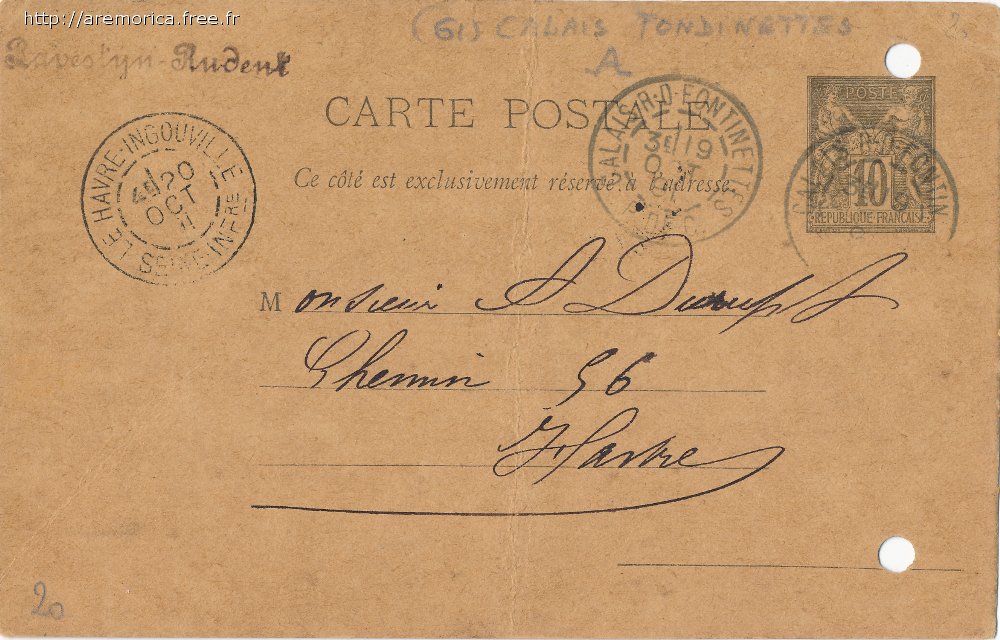 http://aremorica.free.fr
(61) CALAIS FONDINETTES
A
2.
Ravestyn-Rudent
CARTE POSTALE
Ce côté est exclusivement réservé à l'adresse.
POSTE
10
REPUBLIQUE FRANÇAISE
LE HAVRE-INGOUVILLE
4E 20
OCT
SEINE INFRE
CALAIS-R-D-FONTINETTES
3E 19
OCT
CALAIS-R-D-FONTIN
Monsieur A
Chemin 56
Havre
20